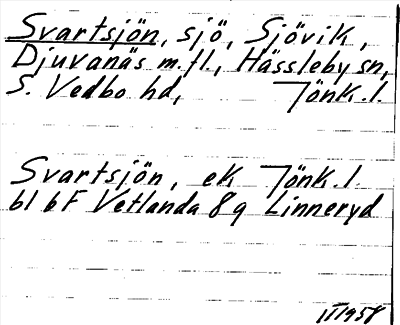 Svartsjön, sjö, Sjövik,
Djuvanäs m.fl., Hässleby sn,
S. Vedbo hd, Jönk.l.
Svartsjön, ek Jönk.l.
bl 6F Vetlanda 8g Linneryd
III1958